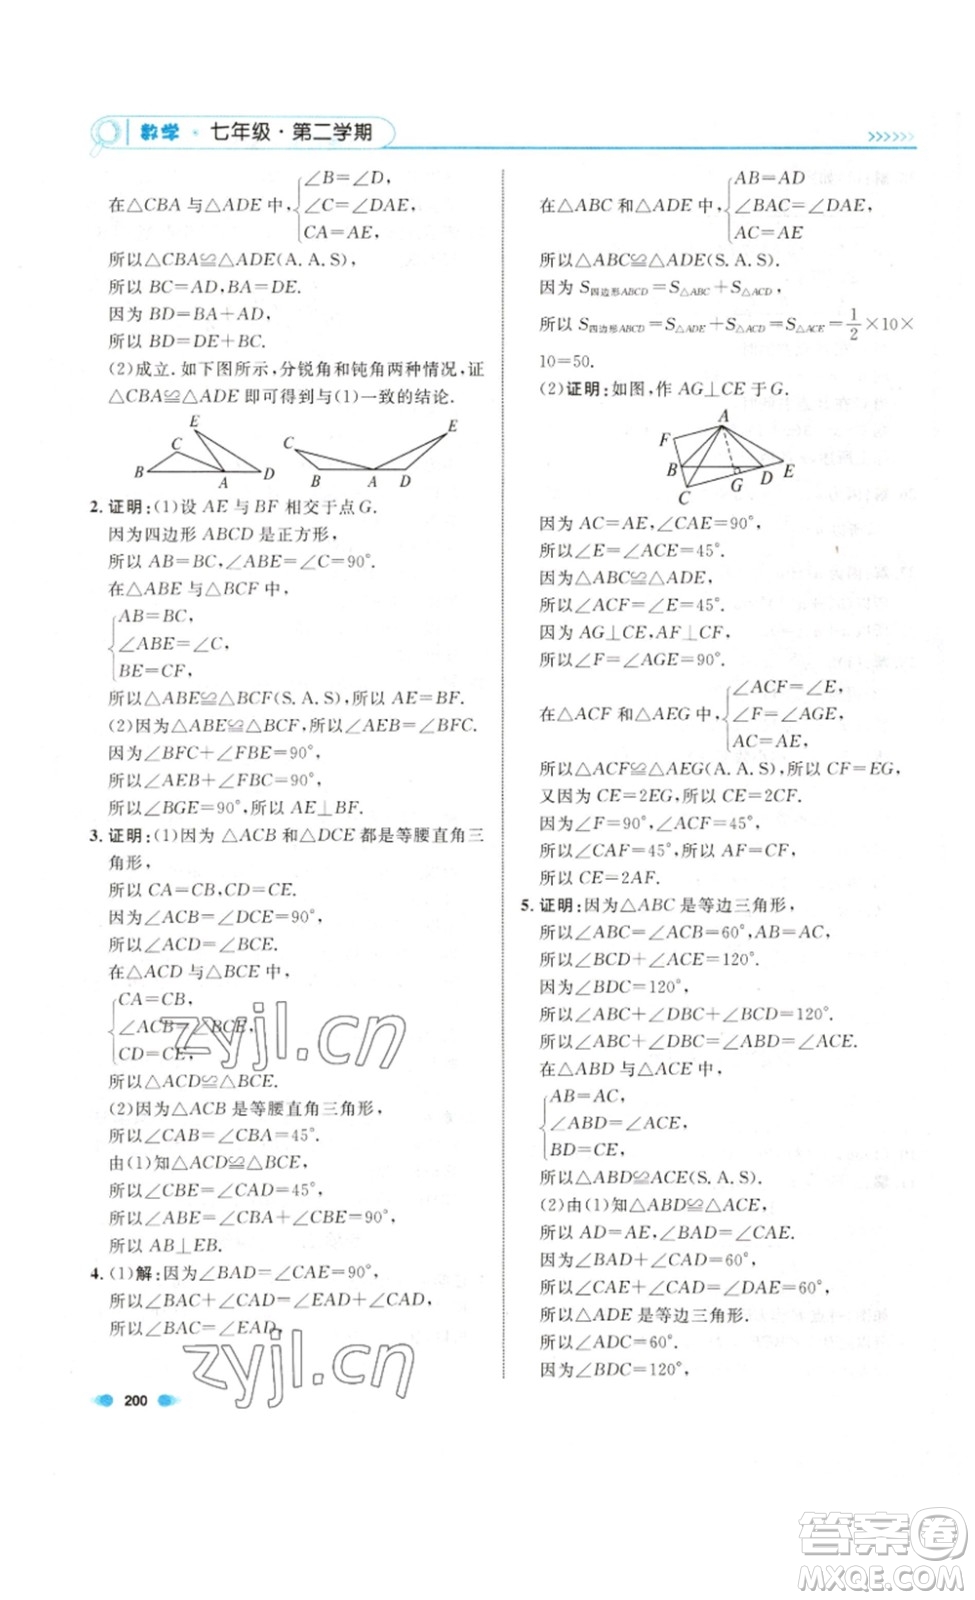 数学·七年级·第二学期
在△CBA 与△ADE 中,{∠B=∠D,
∠C=∠DAE,
CA=AE,
所以△CBA≌△ADE(A.A.S),
所以 BC=AD,BA=DE.
因为 BD=BA+AD,
所以 BD=DE+BC.
(2)成立.如下图所示,分锐角和钝角两种情况,证
△CBA≌△ADE 即可得到与(1)一致的结论.
E
C
B
A
D
C
E
B
A
D
2. 证明:(1)设 AE 与 BF 相交于点G.
因为四边形 ABCD 是正方形,
所以 AB=BC,∠ABE=∠C=90°.
在△ABE 与△BCF 中,
{AB=BC,
∠ABE=∠C,
BE=CF,
所以△ABE≌△BCF(S.A.S),所以 AE=BF.
(2)因为△ABE≌△BCF,所以∠AEB=∠BFC.
因为∠BFC+∠FBC=90°,
所以∠AEB+∠FBC=90°,
所以∠BGE=90°,所以 AE⊥BF.
3. 证明:(1)因为 △ACB 和△DCE 都是等腰直角三
角形,
所以 CA=CB,CD=CE.
因为∠ACB=∠DCE=90°,
所以∠ACD=∠BCE.
在△ACD 与△BCE 中,
{CA=CB,
∠ACB=∠BCE,
CD=CE,
所以△ACD≌△BCE.
(2)因为△ACB是等腰直角三角形,
所以∠CAB=∠CBA=45°.
由(1)知△ACD≌△BCE,
所以∠CBE=∠CAD=45°,
所以∠ABE=∠CBA+∠CBE=90°,
所以 AB⊥EB.
4. (1)解:因为∠BAD=∠CAE=90°,
所以∠BAC+∠CAD=∠EAD+∠CAD,
所以∠BAC=∠EAD.
在△ABC 和△ADE 中,{AB=AD
∠BAC=∠DAE,
AC=AE
所以△ABC≌△ADE(S.A.S).
因为 S四边形ABCD=S△ABC+S△ACD,
所以 S四边形ABCD=S△ADE+S△ACD=S△ACE=1/2×10×
10=50.
(2)证明:如图,作 AG⊥CE 于G.
A
F
B
E
G
D
C
因为 AC=AE,∠CAE=90°,
所以∠E=∠ACE=45°.
因为△ABC≌△ADE,
所以∠ACF=∠E=45°.
因为 AG⊥CE,AF⊥CF,
所以∠F=∠AGE=90°.
在△ACF 和△AEG 中,{∠ACF=∠E,
∠F=∠AGE,
AC=AE,
所以△ACF≌△AEG(A.A.S),所以 CF=EG,
又因为 CE=2EG,所以 CE=2CF.
因为∠F=90°,∠ACF=45°,
所以∠CAF=45°,所以 AF=CF.
所以 CE=2AF.
5. 证明:因为△ABC 是等边三角形,
所以∠ABC=∠ACB=60°,AB=AC,
所以∠BCD+∠ACE=120°.
因为∠BDC=120°,
所以∠ABC+∠DBC+∠BCD=120°.
所以∠ABC+∠DBC=∠ABD=∠ACE.
在△ABD 与△ACE 中,
{AB=AC,
∠ABD=∠ACE,
BD=CE,
所以△ABD≌ACE(S.A.S).
(2)由(1)知△ABD≌△ACE,
所以 AD=AE,∠BAD=∠CAE.
因为∠BAD+∠CAD=60°,
所以∠CAE+∠CAD=∠DAE=60°,
所以△ADE是等边三角形.
所以∠ADC=60°.
因为∠BDC=120°,
200
zyjl.cn
zyjl.cn
答案卷
MXQE.COM